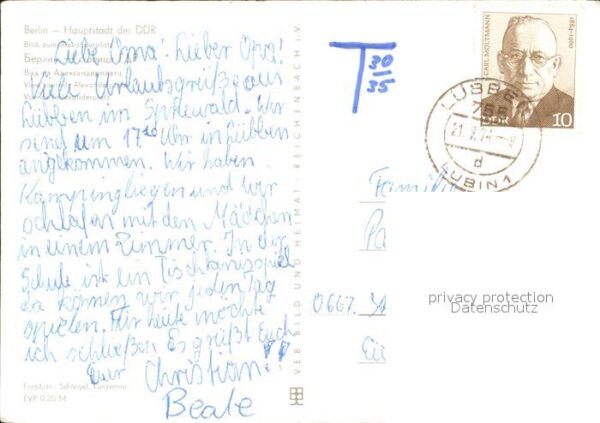 Berlin — Hauptstadt der DDR
Liebe Oma! Lieber Opa!
Viele Urlaubsgrüße aus
Lübben im Spreewald. Wir
sind um 17 Uhr in Lübben
angekommen. Wir haben
Kampingliegen und wir
schlafen mit den Mädchen
in einem Zimmer. In der
Schule ist ein Tischtennisspiel
da können wir jeden Tag
spielen. Für heute möchte
ich schließen Es grüßt Euch
Euer Christian!!
Beate
EVP 0.20 M
VEB BILD UND HEIMAT REICHENBACH i. V.
T 30
35
CARL MOLTMANN
1884-1960
DDR 10
LÜBBEN
d
LUBIN 1
Famili
0667.
privacy protection
Datenschutz